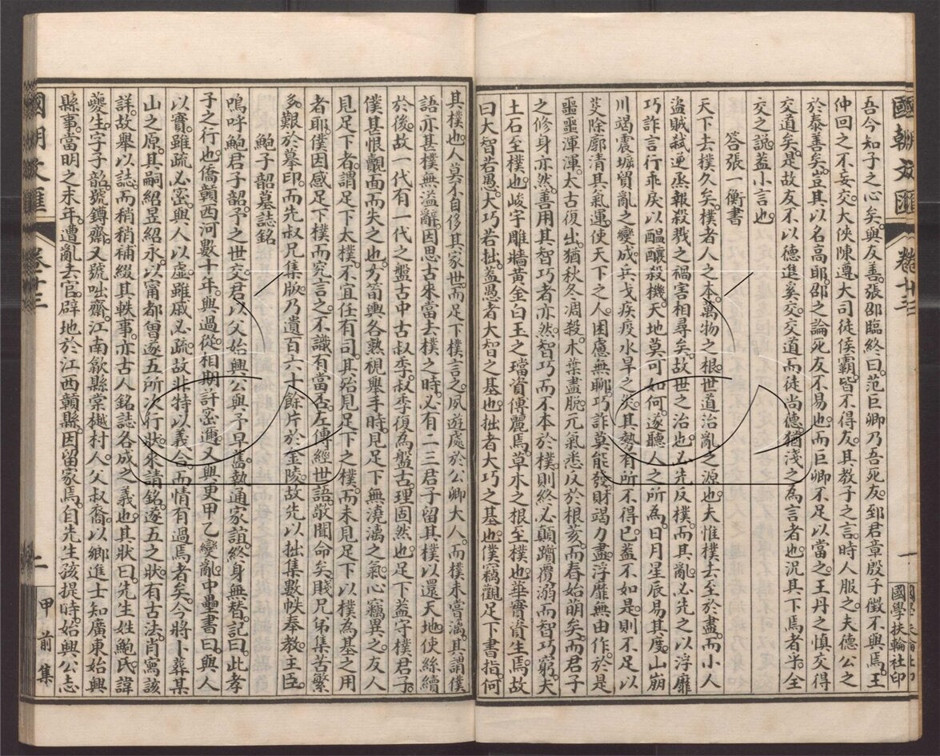 國朝文匯
卷十三
一
國學扶輪社印
吾今知子之心矣與友善張邵臨終曰范巨卿乃吾死友郅君章殷子徵不與焉王
仲回之不妄交大俠陳遵大司徒侯霸皆不得友其教子之言時人服之夫德公之
於泰善矣豈其以名高耶邵之論死友不易也而巨卿不足以當之王丹之慎交得
交道矣是故友不以德進奚交交道而徒尚德猶淺之為言者也況其下焉者乎全
交之說蓋小言也
答張一衡書
天下去樸久矣樸者人之本萬物之根世道治亂之源也夫惟樸去至於盡而小人
盜賊弒逆烝報殺戮之禍害相尋矣故世之治也必先反樸而其亂必先之以浮靡
巧詐言行乖戾以醞釀殺機天地莫可如何遂聽人之所為日月星辰易其度山崩
川竭震墟貿亂之變成兵戈疾疫水旱之災其勢有所不得已蓋不如是則不足以
芟除廓清其氣運使天下之人困憊無聊巧詐莫能發財竭力盡浮靡無由作於是
噩噩渾渾太古復出猶秋冬凋殺木葉盡脫元氣悉反於根荄而春始萌矣而君子
之修身亦然善用其智巧者亦然智巧而不本於樸則終必顛躓覆溺而智巧窮夫
土石至樸也峻宇雕牆黃金白玉之璫資傅麗焉草木之根至樸也華實資生焉故
曰大智若愚大巧若拙蓋愚者大智之基也拙者大巧之基也僕竊觀足下書指何
其樸也人莫不自侈其家世而足下樸言之夙遊處於公卿大人而樸未嘗漓其謂僕
語亦甚樸無溢辭因思古來當去樸之時必有二三君子留其樸以還天地使絲續
於後故一代有一代之盤古中古叔季叔季復為盤古理固然也足下蓋守樸君子
僕甚恨覿面而失之也方筍輿各熟視舉手時見足下無澆漓之氣心竊異之友人
見足下者謂足下太樸不宜任有司其殆見足下之樸而未見足下以樸為基之用
者耶僕因感足下樸而究言之不識有當否左傳經世語敬聞命矣賤兄弟集苦繁
多艱於摹印而先叔兄集版乃遺百六十餘片於金陵故先以拙集數帙奉教主臣
鮑子韶墓誌銘
嗚呼鮑君子韶予之世交君以父始興公與予早當執通家誼終身無替記曰此孝
子之行也僑贛西河數十年與過從相期許密邇又與更甲乙變亂中壘書曰與人
以實雖疏必密與人以虛雖戚必疏故非特以義合而情有過焉者矣今將卜葬某
山之原其嗣紹昱紹永以甯都曾遂五所次行狀來請銘遂五之狀有古法肖寫該
詳故舉以誌而稍稍補綴其軼事亦古人銘誌各成之義也其狀曰先生姓鮑氏諱
夔生字子韶號鑮齋又號咄齋江南歙縣棠樾村人父叔喬以鄉進士知廣東始興
縣事當明之末年遭亂去官辟地於江西贛縣因留家焉自先生孩提時始興公志
國朝文匯
卷十三
二
甲前集